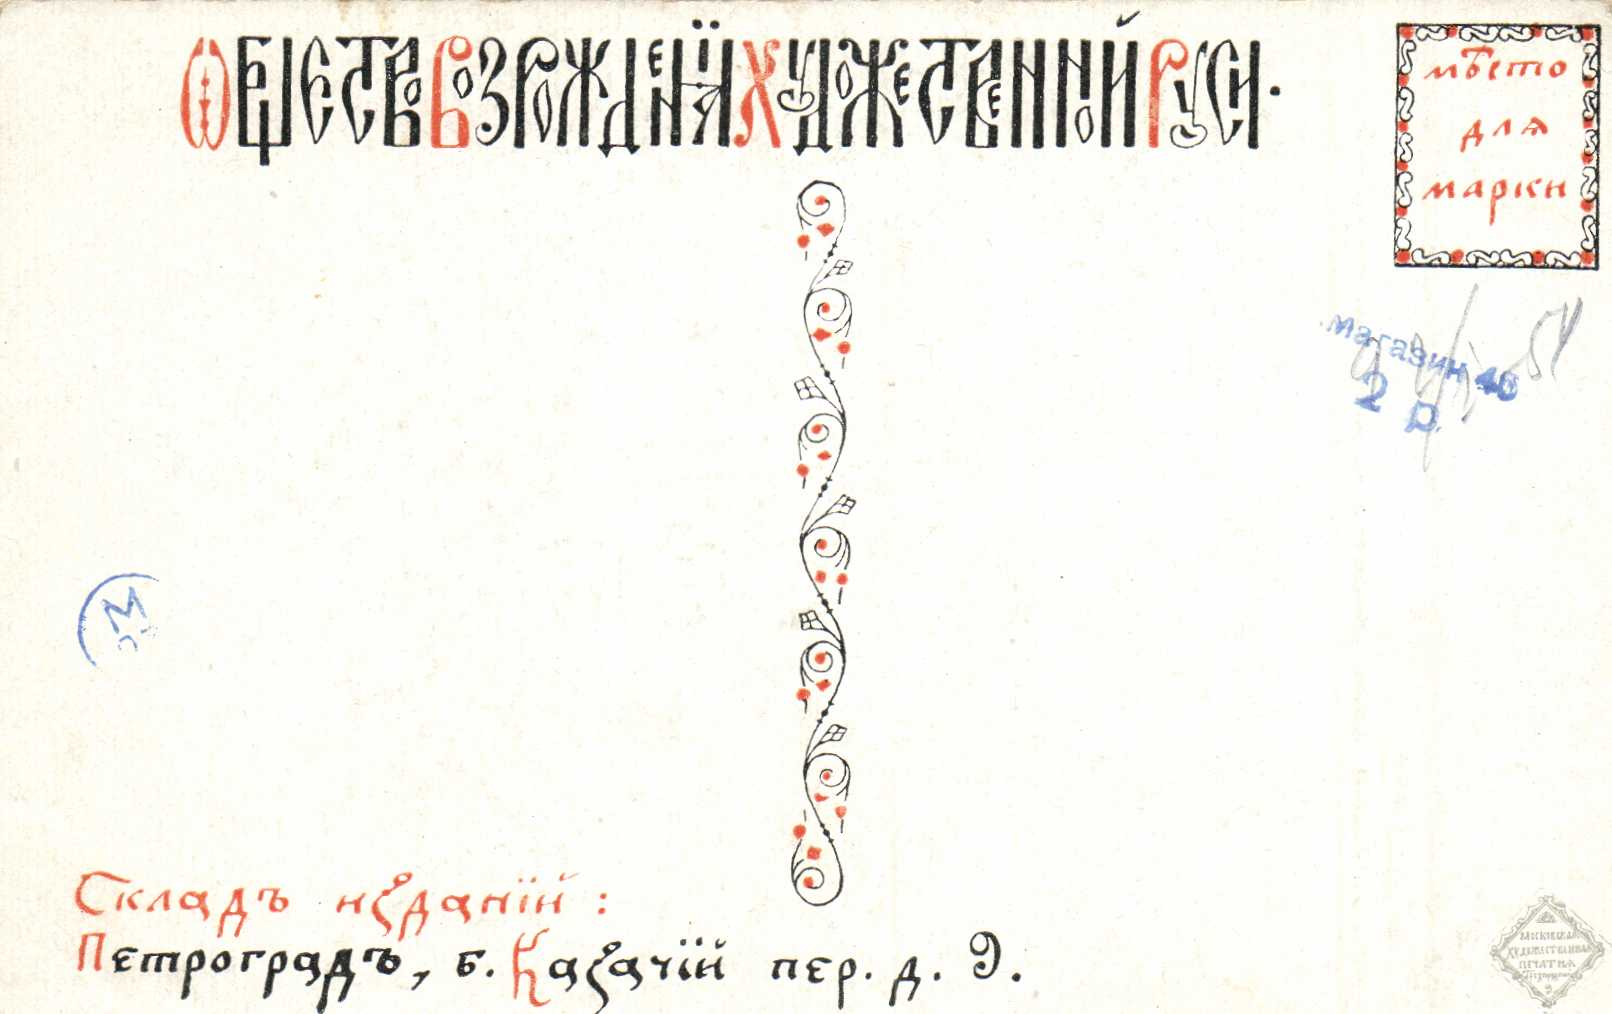 Ѻбщество возрожденія художественной Руси.
мѣсто
для
марки
магазин 46
2 р.
М
Складъ изданій:
Петроградъ, б. Казачій пер. д. 9.
МОСКОВСКАЯ
ХУДОЖЕСТВЕННАЯ
ПЕЧАТНЯ